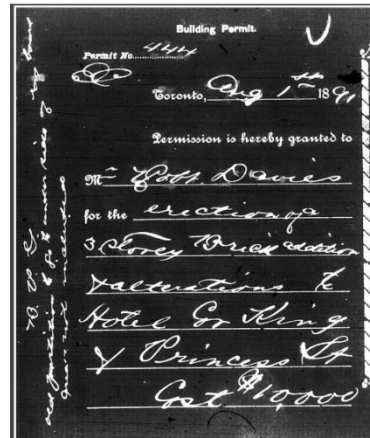 Building Permit.
Permit No. 444
Toronto, Aug 1st 1891
Permission is hereby granted to
Mr Robt. Davies
for the erection of a
3 Storey Brick addition
& alterations to
Hotel Cor King
& Princess St
Cost $10,000